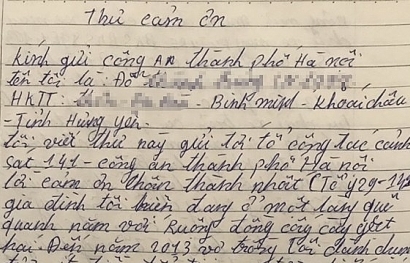 Thư cảm ơn
Kính gửi công AN thành phố Hà nội
tên tôi là: Đỗ
HKTT: - Bình minh - Khoái châu
- Tỉnh Hưng Yên.
tôi viết thư này gửi tới tổ công tác cảnh
sát 141 - công an thành phố Hà nội
lời cảm ơn chân thành nhất (Tổ y29-141
gia đình tôi hiện đang ở một làng quê
quanh năm với Ruộng đồng cây cấy gặt
hái. Đến năm 2013 vợ chồng tôi dành dụm